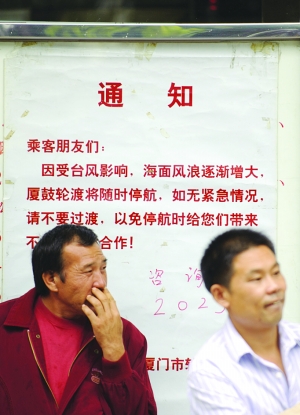 通 知
乘客朋友们：
因受台风影响，海面风浪逐渐增大，
厦鼓轮渡将随时停航，如无紧急情况，
请不要过渡，以免停航时给您们带来
不合作！
咨 询
202
厦门市轮